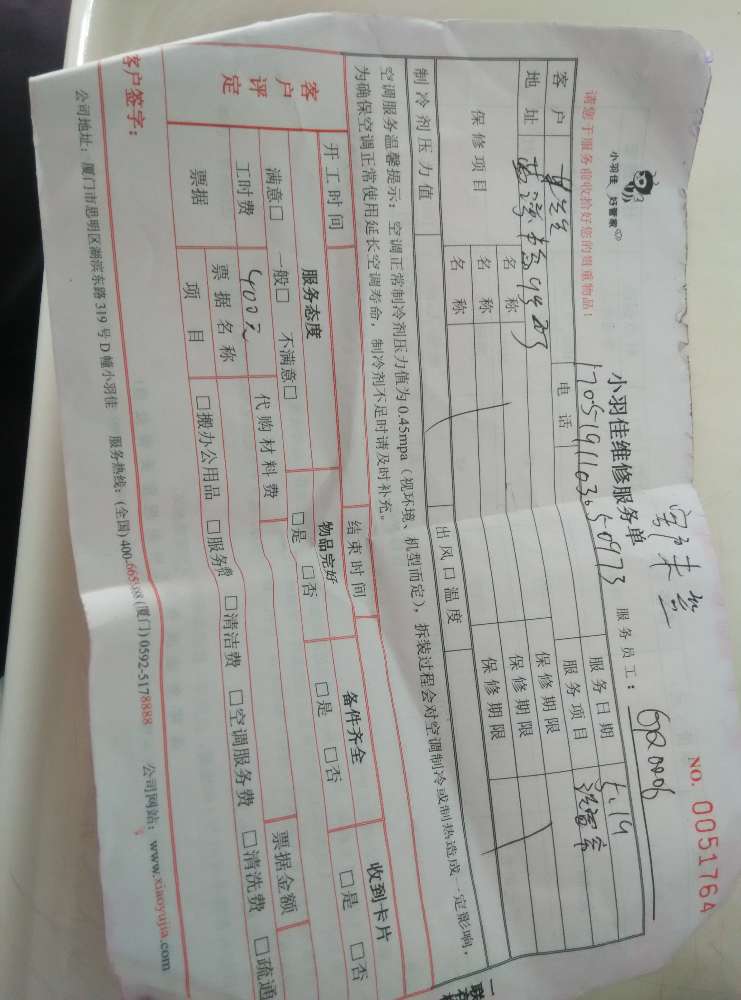 小羽佳 好管家
小羽佳维修服务单
NO. 0051764
请您于服务前收拾好您的贵重物品！
服务员工：
客户
电话
服务日期 5.19
地址
服务项目
保修项目 名称 保修期限
名称 保修期限
名称 保修期限
制冷剂压力值 出风口温度
空调服务温馨提示：空调正常制冷剂压力值为0.45mpa（视环境、机型而定），拆装过程会对空调制冷或制热造成一定影响，
为确保空调正常使用延长空调寿命，制冷剂不足时请及时补充。
开工时间 结束时间
客户评定 服务态度 物品完好 备件齐全 收到卡片
满意□ 一般□ 不满意□ □是 □否 □是 □否 □是 □否
工时费 400元 代购材料费
票据 票据名称 票据金额
项目 □搬办公用品 □服务费 □清洁费 □空调服务费 □清洗费 □疏通
客户签字：
公司地址：厦门市思明区湖滨东路319号D幢小羽佳 服务热线：(全国) (厦门) 0592-5178888 公司网站：www.xiaoyujia.com